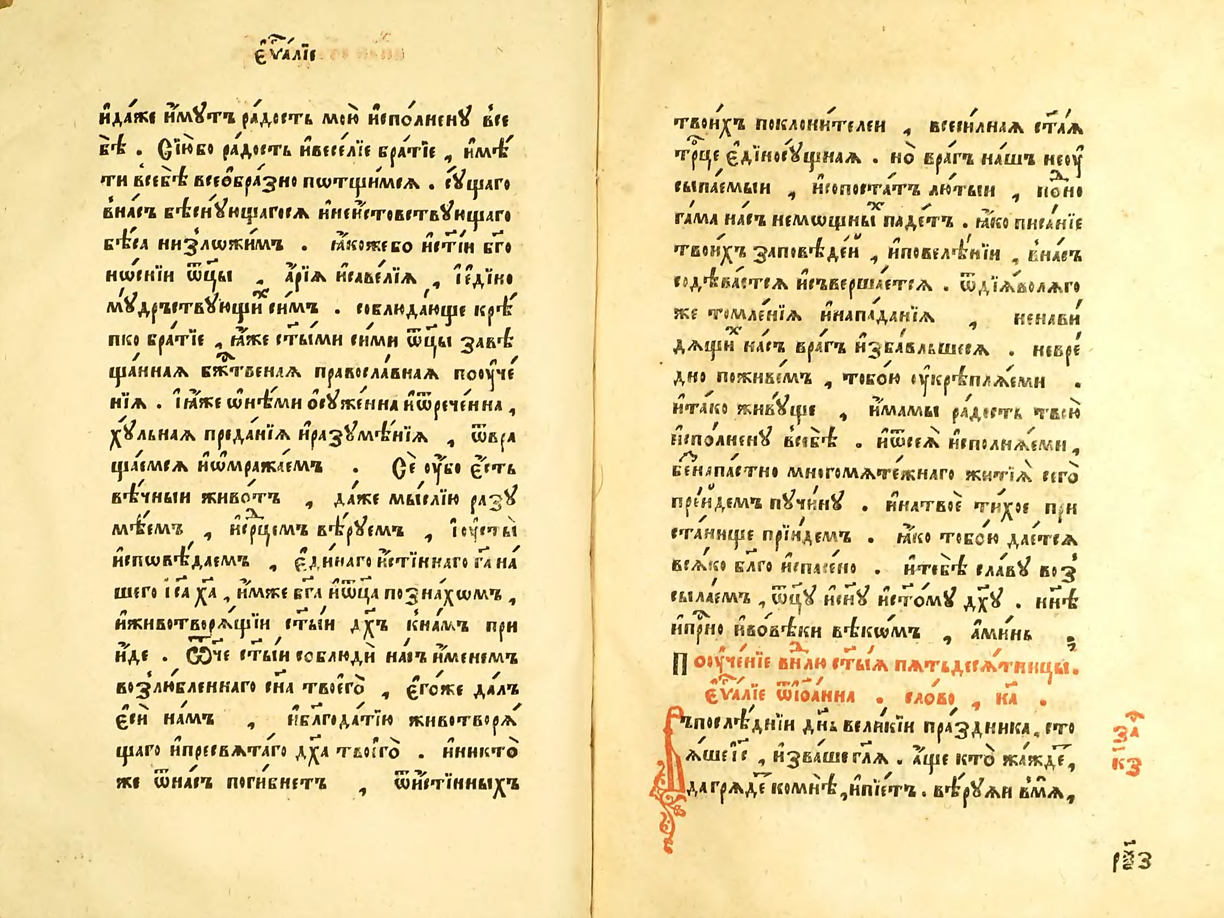 є҆ѵⷢ҇а́лїє
и҆да́жє и҆́мꙋтъ ра́дость мою̀ и҆спо́лненꙋ всє
бѣ̀ . Сїю́бо ра́дость и҆весе́лїе бра́тїе , и҆мѣ́
ти всебѣ̀ всео́бра́зно пѡтщи́мсѧ . сꙋ́щаго
внасъ бѣсꙋ́ющагосѧ и҆неи҆́стовствꙋющаго
бѣ́са низло́жимъ . ꙗ҆́кожебо и҆́стїи бг҃о
но́снїи ѿц҃ы , а҆́рїѧ и҆саве́лїѧ , і҆є҆ді́но
мꙋ́дръствꙋющиⷯ си́мъ . соблюда́юще крѣ́
пко бра́тїе , ꙗ҆̀же ст҃ы́ми си́ми ѿц҃ы завѣ́
ща́ннаѧ бж҃твенаѧ правосла́внаѧ поѹче́
нїѧ . і҆ꙗ҆̀же ѡ҆нѣ́ми о҆сꙋже́нна и҆ѿрече́нна ,
хꙋ́льнаѧ преда́нїѧ и҆разꙋмѣ́нїѧ , ѿвра
ща́емсѧ и҆ѡ҆мража́емъ . Сѐ ᲂу҆̀бо є҆́сть
вѣ́чныи живо́тъ , да́же мы́слїю разꙋ
мѣ́емъ , и҆се́рⷣцемъ вѣ́рꙋемъ , і҆ᲂу҆сты̀
и҆сповѣ́даемъ , є҆ди́наго и҆́стїннаго гⷭ҇а на́
шего і҆с҃а хⷭ҇а , и҆́мже бг҃а и҆ѿц҃а позна́хѡмъ ,
и҆животворѧ́щїи ст҃ы́и дх҃ъ кна́мъ при
и҆́де . Ѿ́че ст҃ы́и соблюдѝ на́съ и҆́менемъ
возлю́бленнаго сн҃а твоего̀ , є҆го́же да́лъ
є҆сѝ на́мъ , и҆благода́тїю животворѧ́
щаго и҆пресвѧта́го дх҃а твоего̀ . и҆никто̀
же ѿна́съ поги́бнетъ , ѿи҆́стїнныхъ
твои́хъ поклони́телеи , всеси́лнаѧ ст҃а́ѧ
трⷪ҇це є҆диносꙋ́щнаѧ . но̀ вра́гъ на́шъ неᲂу҆
сыпа́емыи , и҆сопоста́тъ лю́тыи ,
на́съ не́мощныⷯ паде́тъ . ꙗ҆́ко писа́нїе
твои́хъ за́повѣдей , и҆повелѣ́нїи , вна́съ
содѣ́ваетсѧ и҆съверша́етсѧ . ѿдїѧ́волѧго
же томле́нїѧ и҆напа́данїѧ , ненави
дѧ́щиⷯ на́съ вра́гъ и҆зба́вльшесѧ . невре́
дно поживе́мъ , тобо́ю ᲂу҆крѣплѧ́еми .
и҆та́ко живꙋ́ще , и҆́мамы ра́дость твою̀
и҆спо́лненꙋ всебѣ̀ . и҆ѿсеѧ̀ и҆сполнѧ́еми ,
безнапа́стно многомѧте́жнаго житїѧ̀ сего̀
преи́демъ пꙋчи́нꙋ . и҆натвоѐ ти́хое при
ста́нище прїи́демъ . ꙗ҆́ко тобо́ю дае́тсѧ
всѧ́ко бл҃го и҆спасе́но . и҆тебѣ̀ сла́вꙋ воз
сыла́емъ , ѿц҃ꙋ и҆сн҃ꙋ и҆ст҃о́мꙋ дх҃ꙋ . нн҃ѣ
и҆при́сно и҆во́вѣки вѣ́кѡмъ , а҆ми́нь
Поᲂуче́нїе вне́лю ст҃ы́ѧ пѧтьдесѧ́тницы .
є҆ѵⷢ҇а́лїе ѿі҆ѡа́нна . сло́во , ка҃ .
Въпослѣ́днїи дн҃ь вели́кїи пра́здника , сто
ѧ́ше і҆с҃ , и҆зва́ше гл҃ѧ . а҆́ще кто̀ жа́жде ,
да грѧде́ комнѣ̀ , и҆пїе́тъ . вѣ́рꙋѧи вмѧ̀ ,
за҃
к҃з
рѯз